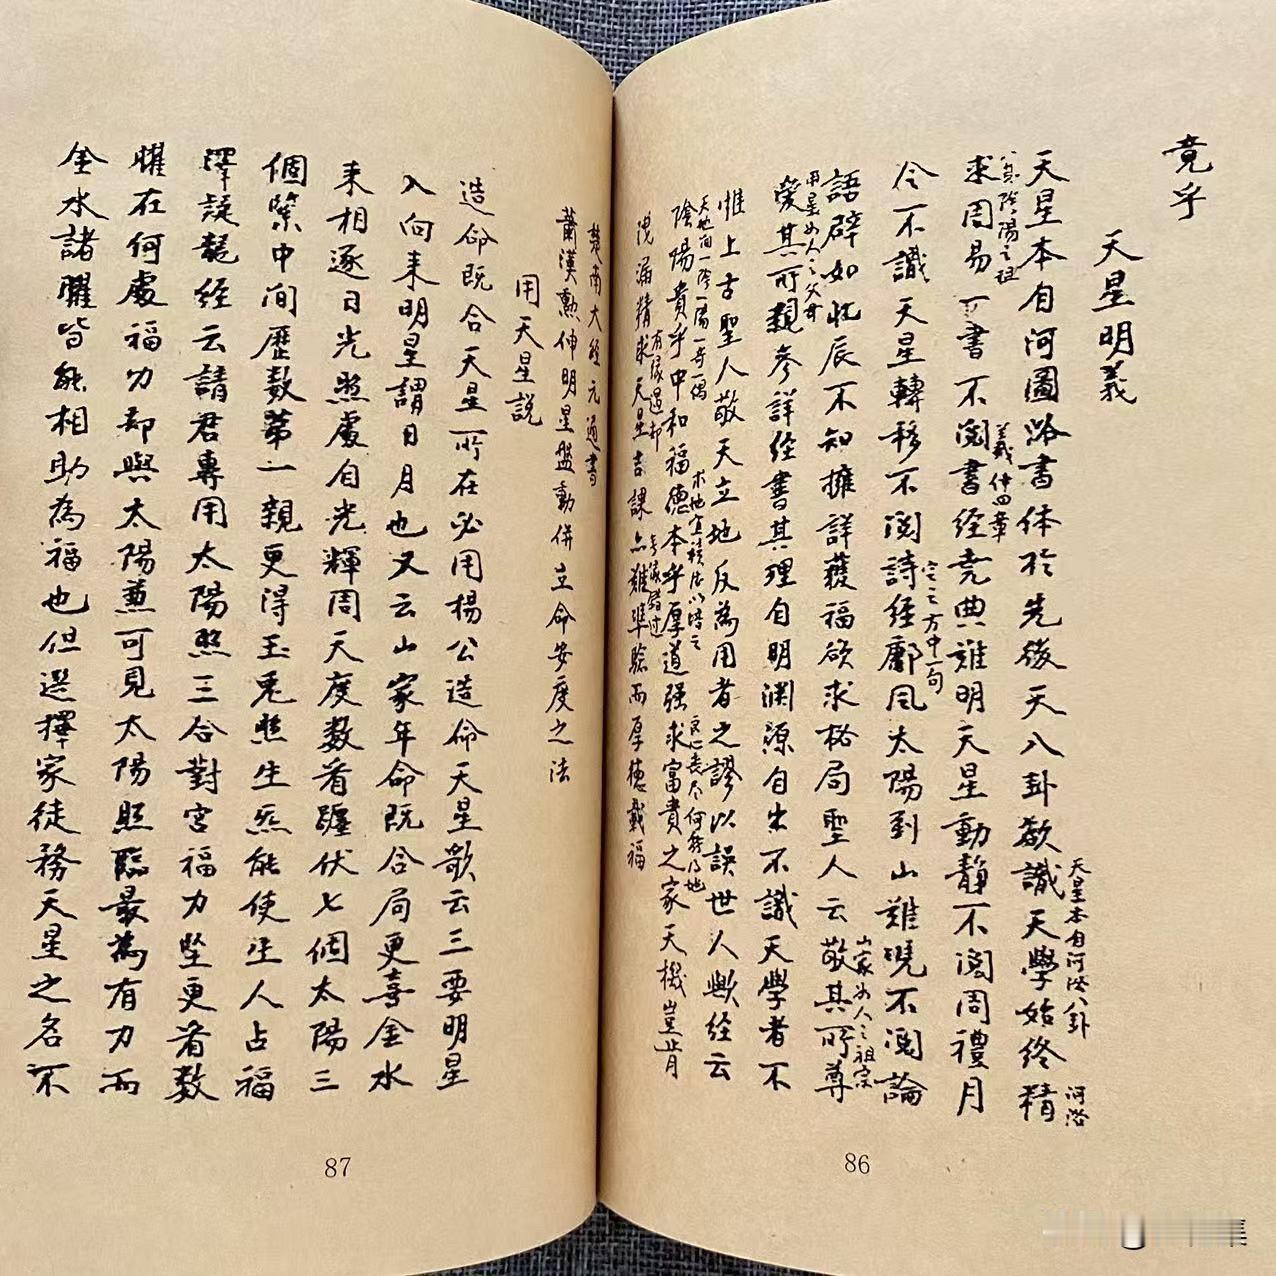 竟乎
天星明義
天星本自河圖洛書体於先後天八卦欲識天學始終精
天星本自河洛八卦
河洛
求周易一書不閱書經堯典难明天星動靜不閱周禮月
八卦陰陽之祖
羲仲四章
令不識天星轉移不閱詩經鄘风太陽到山难曉不閱論
定之方中一句
語辟如北辰不知擁詳獲福欲求秘局聖人云敬其所尊
山家如人之祖宗
愛其所親參詳經書其理自明渊源自出不識天學者不
用星如人之父母
惟上古聖人敬天立地反為用者之謬以誤世人歟經云
陰陽貴乎中和福德本乎厚道强求富貴之家天機豈肯
天地自一陰一陽一奇一偶
求地宜積德以培之
良心丧尽何能得地
洩漏精求天星吉課亦难準驗而厚德載福
有缘遇却
楚南大經元通書
蕭漢勳伸明星盤動併立命安度之法
用天星説
造命既合天星所在必用楊公造命天星歌云三要明星
入向来明星謂日月也又云山家年命既合局更喜金水
来相逐日光照處自光輝周天度数看躔伏七個太陽三
個緊中间歷数第一親更得玉兎照生炁能使生人占福
澤疑龍經云請君專用太陽照三合對宮福力坚更看数
曜在何處福力却與太陽兼可見太陽照臨最為有力而
金水諸曜皆能相助為福也但選擇家徒務天星之名不
87
86